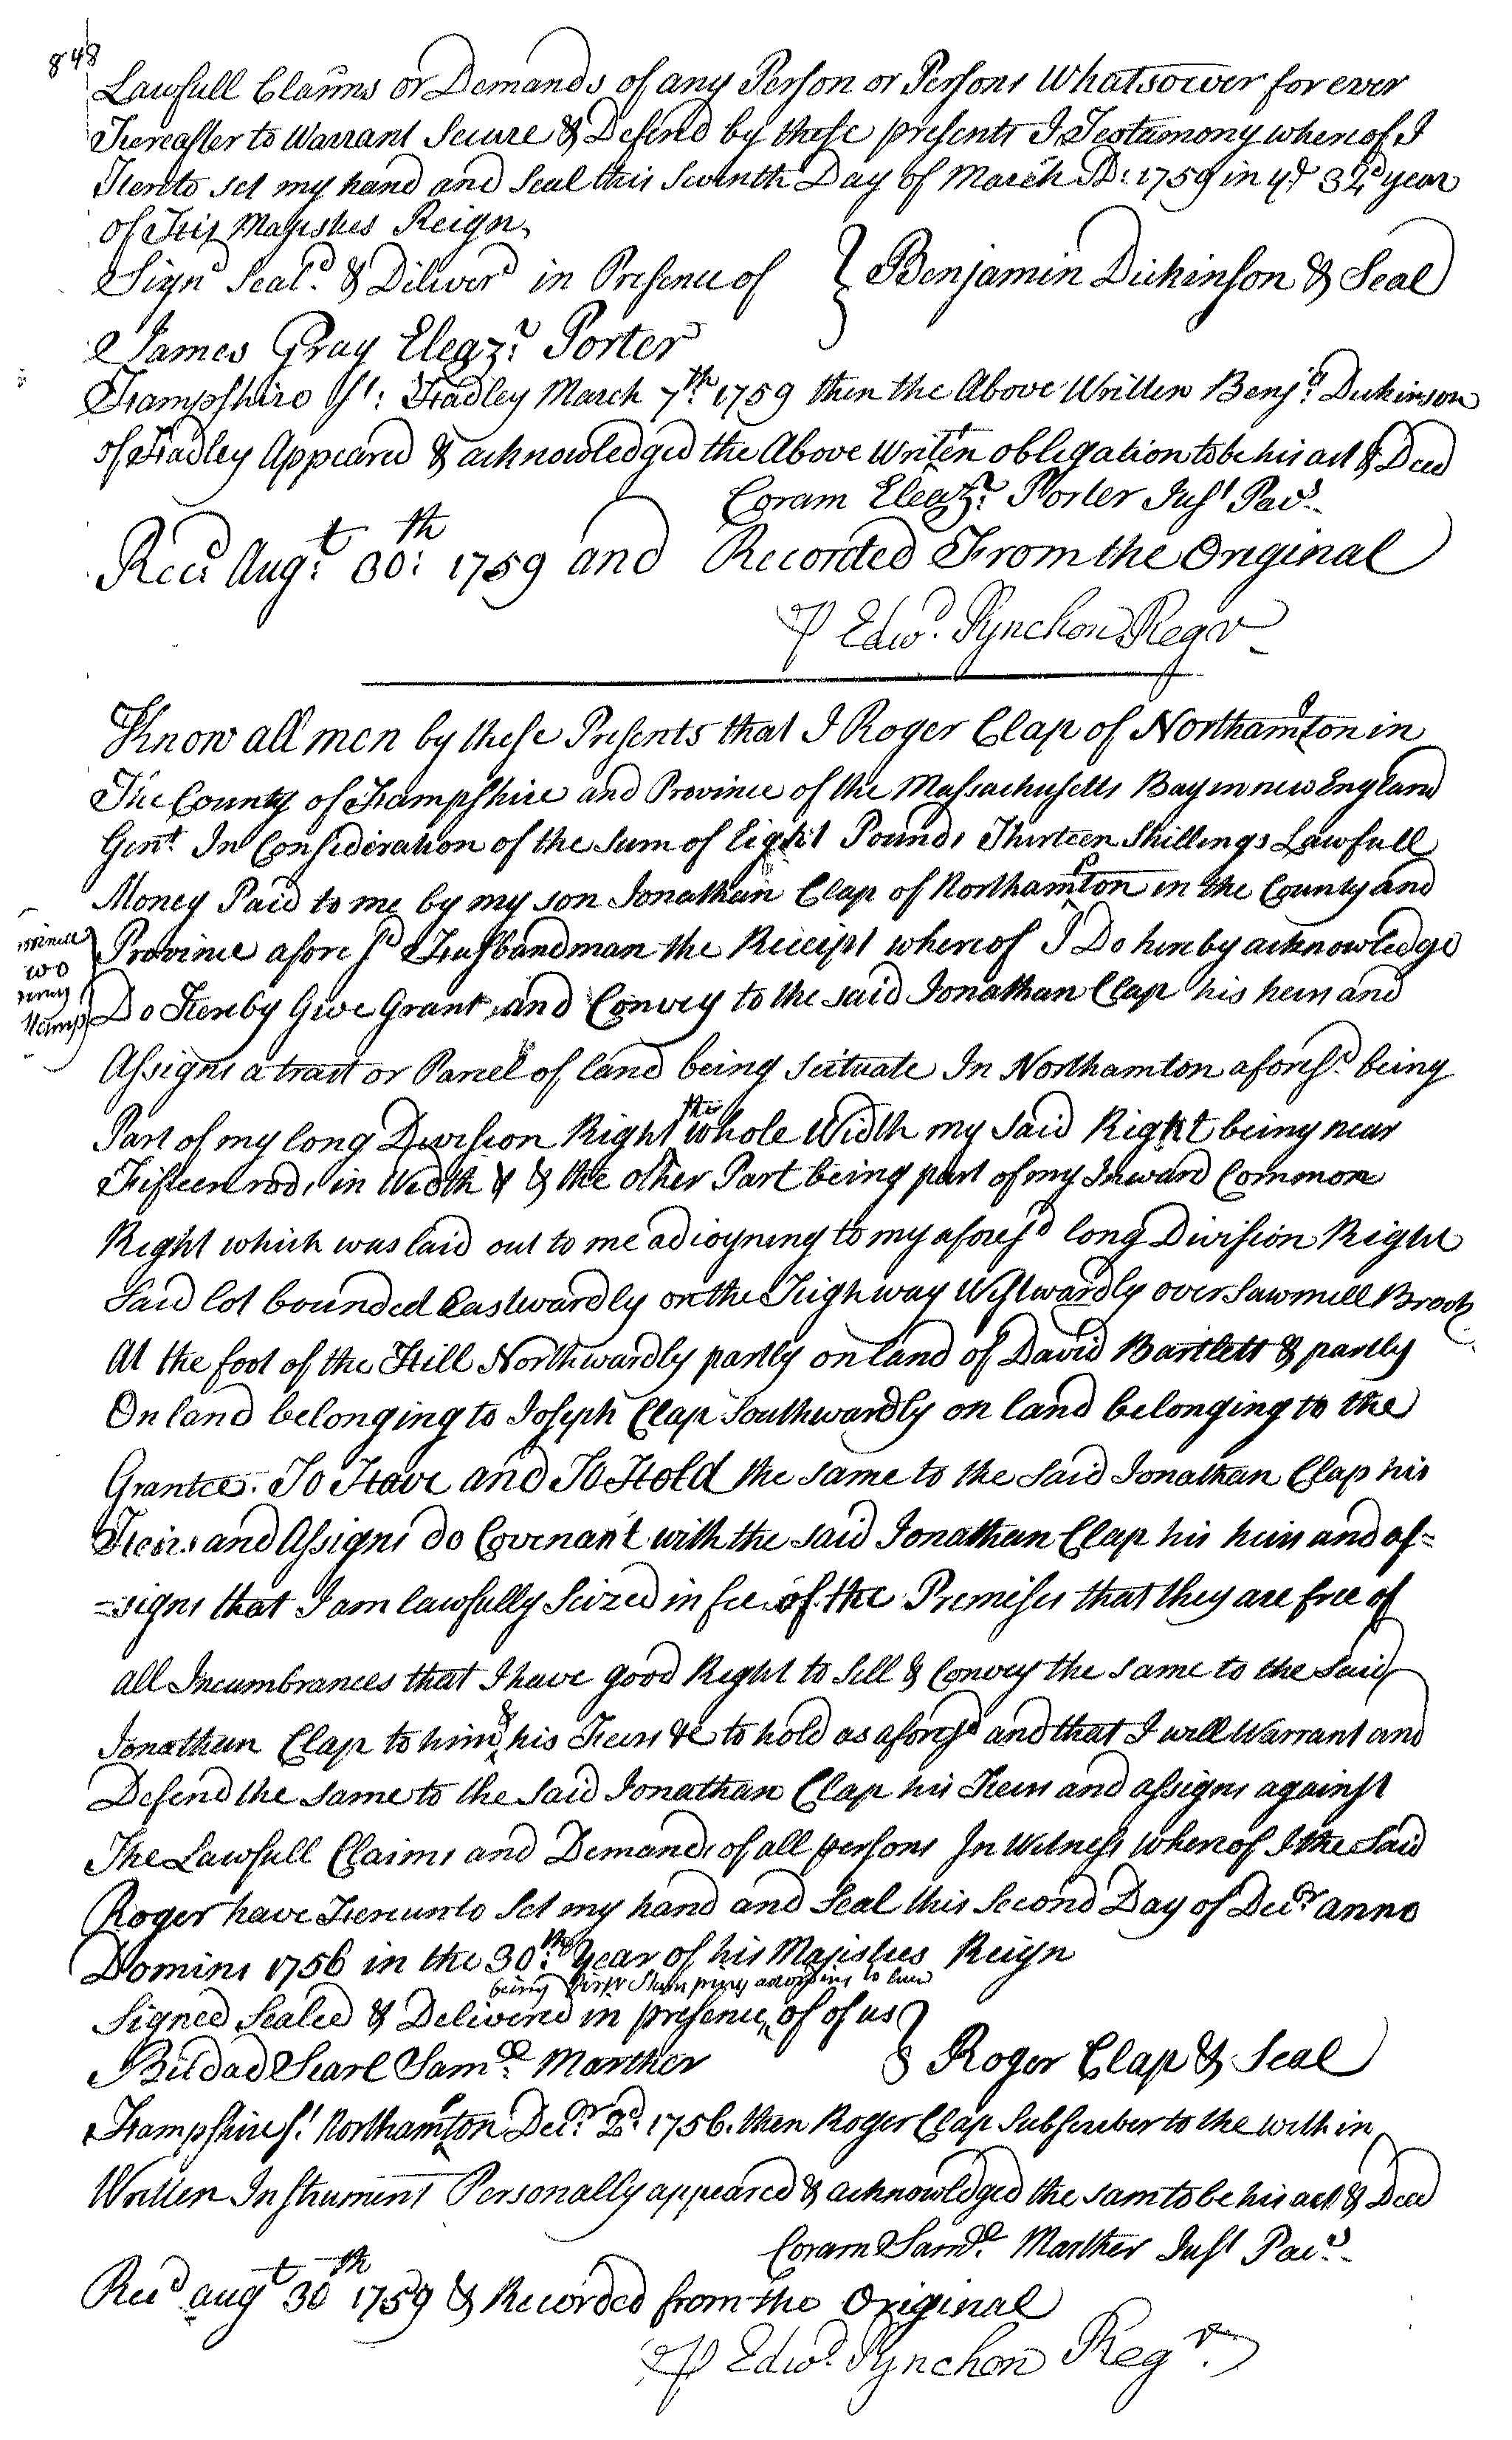 848
Lawfull Claims or Demands of any Person or Persons Whatsoever for ever
Hereafter to Warrant Secure & Defend by these presents In Testamony whereof I
Hereto set my hand and Seal this Seventh Day of March AD: 1759 in ye 32d year
of His Majesties Reign
Signd Seald & Deliverd in Presence of } Benjamin Dickinson & Seal
James Gray Eleazr Porter
Hampshire Ss: Hadley March 7th 1759 then the Above Written Benja Dickinson
of Hadley Appeared & acknowledged the Above Writen obligation to be his act & Deed
Coram Eleazr Porter Just Pacs
Recd Augt 30th: 1759 and Recorded From the Original
P Edwd Pynchon Regr
Know all men by these Presents that I Roger Clap of Northampton in
The County of Hampshire and Province of the Massachusetts Bay in new England
Gent In Consideration of the Sum of Eight Pounds Thirteen Shillings Lawfull
Money Paid to me by my son Jonathan Clap of Northampton in the County and
Province afore sd Husbandman the Receipt whereof I Do hereby acknowledge
Do Hereby Give Grant and Convey to the said Jonathan Clap his heirs and
Assigns a tract or Parcel of land being scituate In Northamton aforesd being
Part of my long Division Right the whole Width my Said Right being near
Fifteen rods in Width & & the other Part being part of my Inward Common
Right which was laid out to me adioyning to my aforesd long Division Right
Said lot bounded Eastwardly on the Highway Westwardly over Sawmill Brook
At the foot of the Hill Northwardly partly on land of David Bartlett & partly
On land belonging to Joseph Clap Southwardly on land belonging to the
Grantee. To Have and To Hold the same to the Said Jonathan Clap his
Heirs and Assigns do Covenant with the said Jonathan Clap his heirs and as=
=signs that I am lawfully Seized in fee of the Premises that they are free of
all Incumbrances that I have good Right to Sell & Convey the same to the Said
Jonathan Clap to him & his Heirs &c to hold as aforesd and that I will Warrant and
Defend the same to the Said Jonathan Clap his Heirs and assigns against
The Lawfull Claims and Demands of all persons In Witness whereof I the Said
Roger have Hereunto Set my hand and Seal this Second Day of Decr anno
Domini 1756 in the 30th Year of his Majesties Reign
being first Stamping according to law
Signed Sealed & Delivered in presence of of us }
Bildad Searl Saml Marther } Roger Clap & Seal
Hampshire Ss: Northampton Decr 2d: 1756. then Roger Clap Subscriber to the with in
Written Instrument Personally appeared & acknowledged the sam to be his act & Deed
Coram Saml Marther Just Pacs
Recd augt 30th 1759 & Recorded from the Original
P Edwd Pynchon Regr